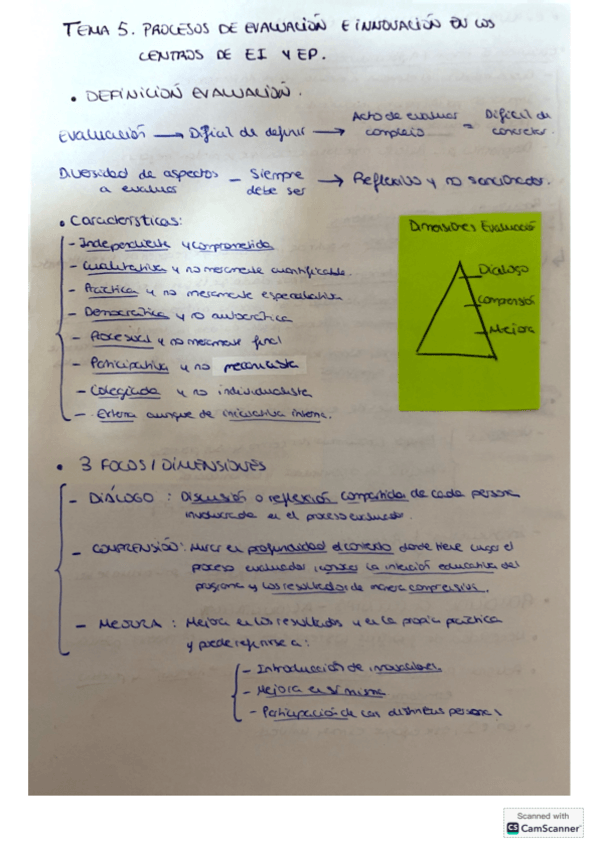 TEMA 5. PROCESOS DE EVALUACIÓN E INNOVACIÓN EN LOS
CENTROS DE EI Y EP.
• DEFINICIÓN EVALUACIÓN.
Evaluación → Difícil de definir → Acto de evaluar complejo = Difícil de concretar.
Diversidad de aspectos a evaluar – Siempre debe ser → Reflexivo y no sancionador.
• Características:
- Independiente y comprometida
- Cualitativa y no meramente cuantificable.
- Práctica y no meramente especulativa
- Democrática y no autocrática
- Procesual y no meramente final
- Participativa y no mecanicista
- Colegiada y no individualista
- Externa aunque de iniciativa interna.
Dimensiones Evaluació
Dialogo
Comprensión
Mejora
• 3 FOCOS / DIMENSIONES
- DIÁLOGO : Discusión o reflexión compartida de cada persona
involucrada en el proceso evaluador.
- COMPRENSIÓN: Mirar en profundidad el contexto donde tiene lugar el
proceso evaluador, conocer la intención educativa del
programa y los resultados de manera comprensiva.
- MEJORA : Mejora en los resultados y en la propia práctica
y puede referirse a:
- Introducción de innovaciones
- Mejora en sí misma
- Participación de las distintas personas
Scanned with
CS CamScanner